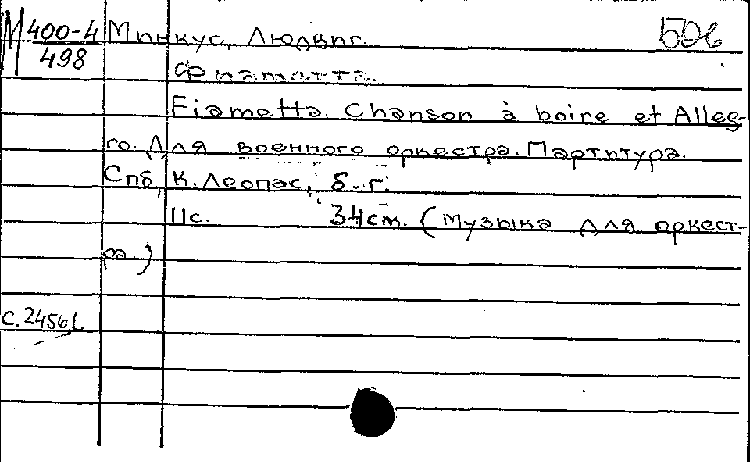 М 400-4 Минкус, Людвиг.
498
Фиаметта.
Fiametta. Chanson à boire et Alleg-
ro. Для военного оркестра. Партитура.
Спб, К. Леопас, б. г.
11с. 34см. (Музыка для оркест-
ра.)